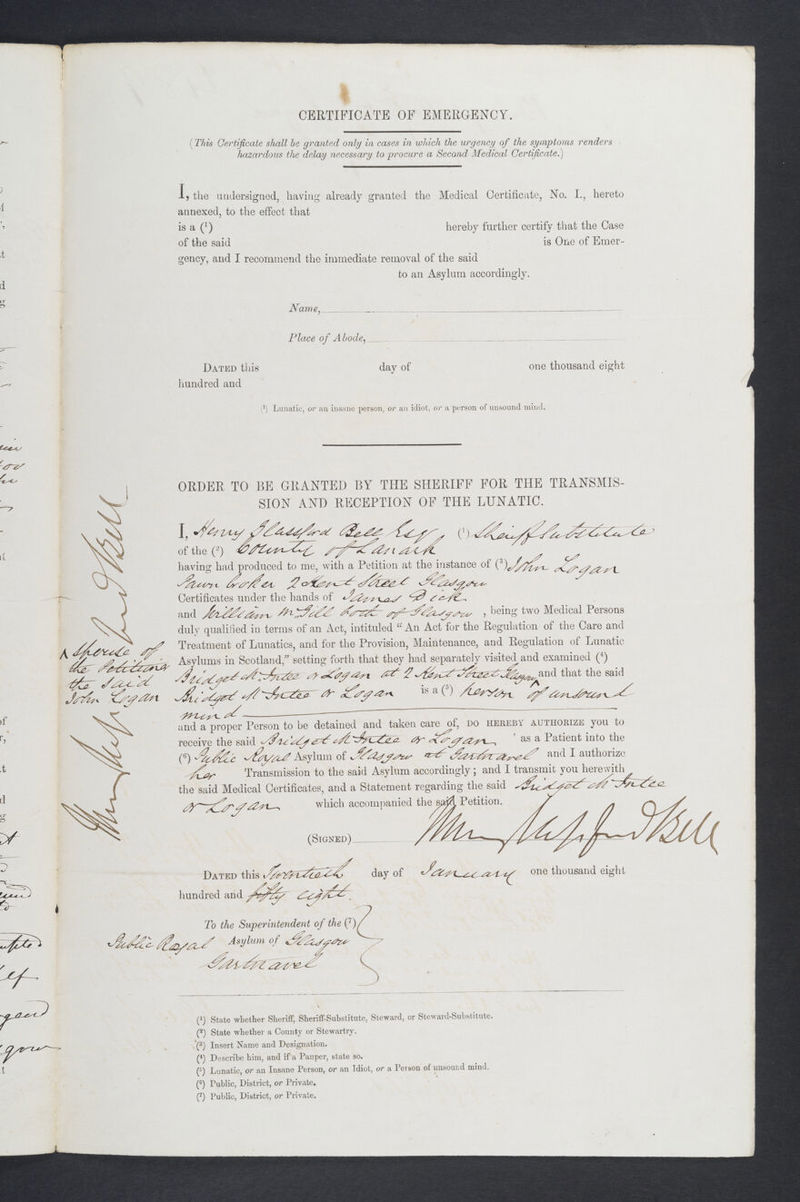 CERTIFICATE OF EMERGENCY.
(This Certificate shall be granted only in cases in which the urgency of the symptoms renders
hazardous the delay necessary to procure a Second Medical Certificate.)
I, the undersigned, having already granted the Medical Certificate, No. I., hereto
annexed, to the effect that
is a (¹) hereby further certify that the Case
of the said is One of Emer-
gency, and I recommend the immediate removal of the said
to an Asylum accordingly.
Name,
Place of Abode,
DATED this day of one thousand eight
hundred and
(¹) Lunatic, or an insane person, or an idiot, or a person of unsound mind.
ORDER TO BE GRANTED BY THE SHERIFF FOR THE TRANSMIS-
SION AND RECEPTION OF THE LUNATIC.
I, Henry Glassford Bell Esqr, (¹) Sheriff Substitute
of the (²) County of Lanark
having had produced to me, with a Petition at the instance of (³) John Logan
Pawn broker 2 Kent Street Glasgow
Certificates under the hands of James Dick
and William McGill both of Glasgow, being two Medical Persons
duly qualified in terms of an Act, intituled "An Act for the Regulation of the Care and
Treatment of Lunatics, and for the Provision, Maintenance, and Regulation of Lunatic
Asylums in Scotland," setting forth that they had separately visited and examined (⁴)
Bridget McIntee or Logan at 2 Kent Street Glasgow and that the said
Bridget McIntee or Logan is a (⁵) Person of unsound
mind
and a proper Person to be detained and taken care of, DO HEREBY AUTHORIZE you to
receive the said Bridget McIntee or Logan as a Patient into the
(⁶) Public Royal Asylum of Glasgow at Gartnavel and I authorize
her Transmission to the said Asylum accordingly; and I transmit you herewith
the said Medical Certificates, and a Statement regarding the said Bridget McIntee
or Logan which accompanied the said Petition.
(SIGNED) Henry Glassford Bell
DATED this Twentieth day of January one thousand eight
hundred and fifty eight.
To the Superintendent of the (⁷)
Public Royal Asylum of Glasgow
Gartnavel
(¹) State whether Sheriff, Sheriff-Substitute, Steward, or Steward-Substitute.
(²) State whether a County or Stewartry.
(³) Insert Name and Designation.
(⁴) Describe him, and if a Pauper, state so.
(⁵) Lunatic, or an Insane Person, or an Idiot, or a Person of unsound mind.
(⁶) Public, District, or Private.
(⁷) Public, District, or Private.
Spouse of
the Petitioner
the said
John Logan
Henry Glassford Bell